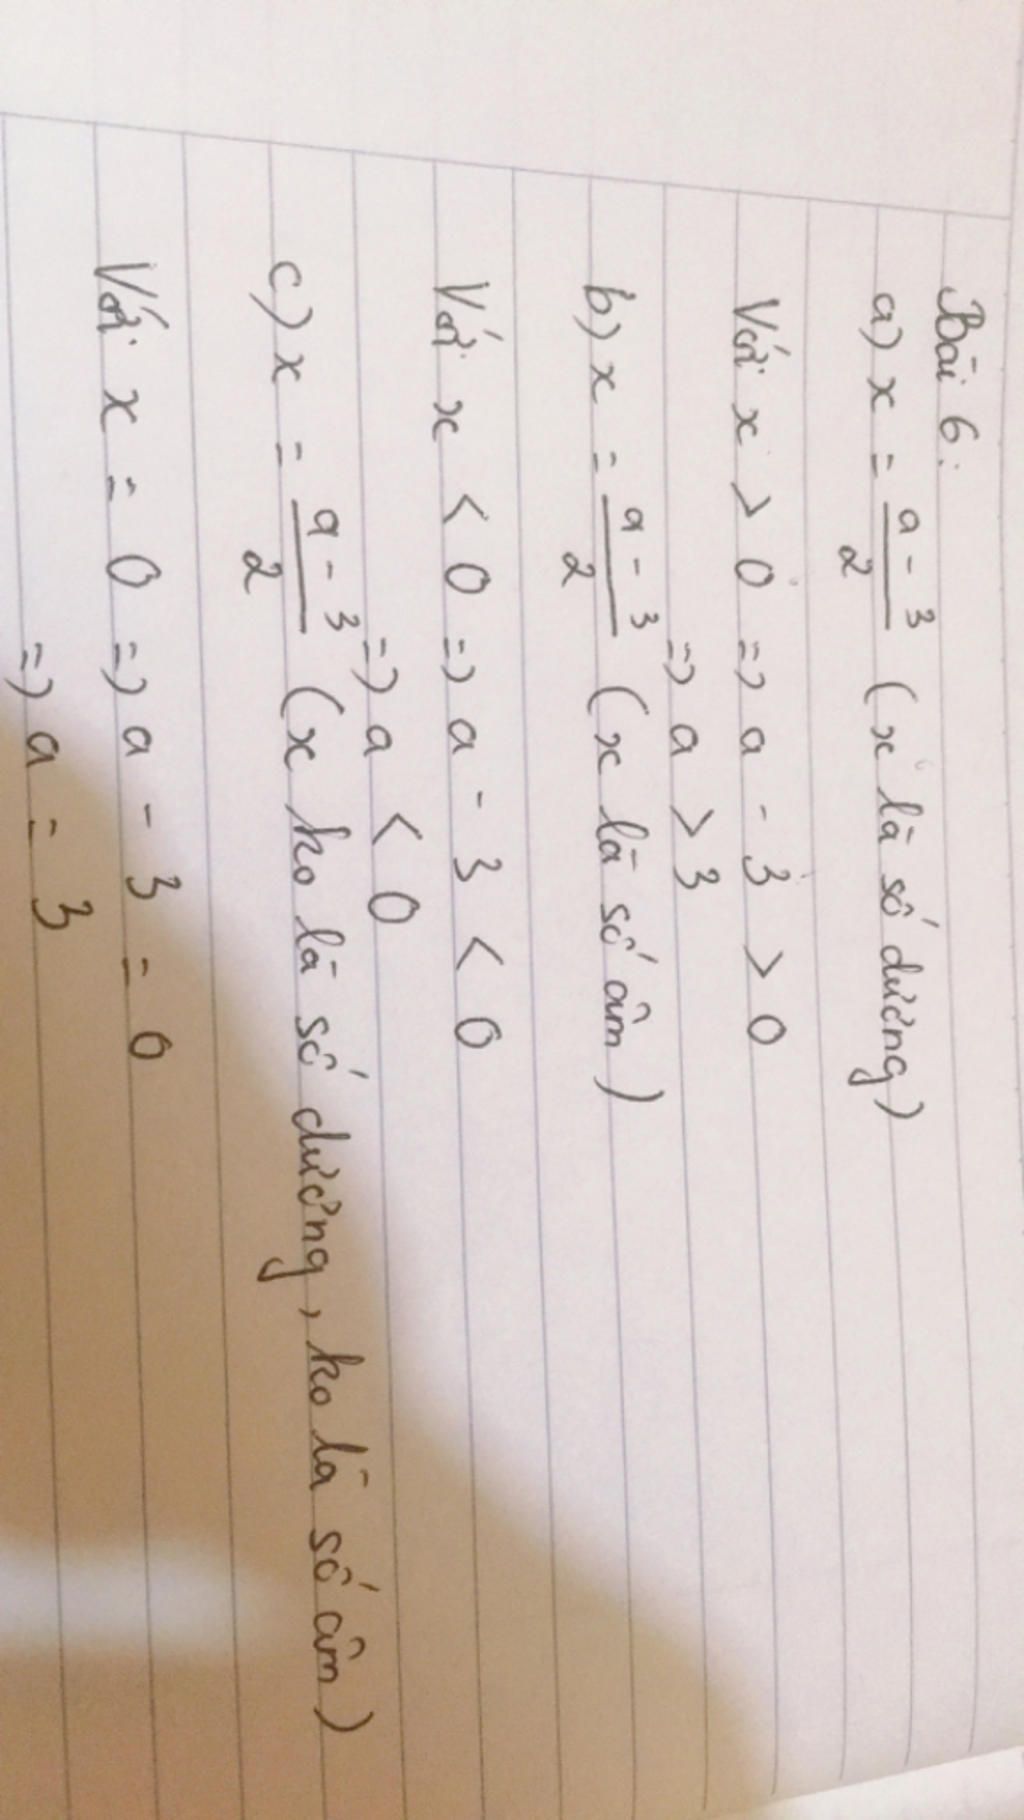 Bài 6:
a) x = a - 3 / 2 (x là số dương)
Với x > 0 => a - 3 > 0
=> a > 3
b) x = a - 3 / 2 (x là số âm)
Với x < 0 => a - 3 < 0
=> a < 0
c) x = a - 3 / 2 (x ko là số dương, ko là số âm)
Với x = 0 => a - 3 = 0
=> a = 3